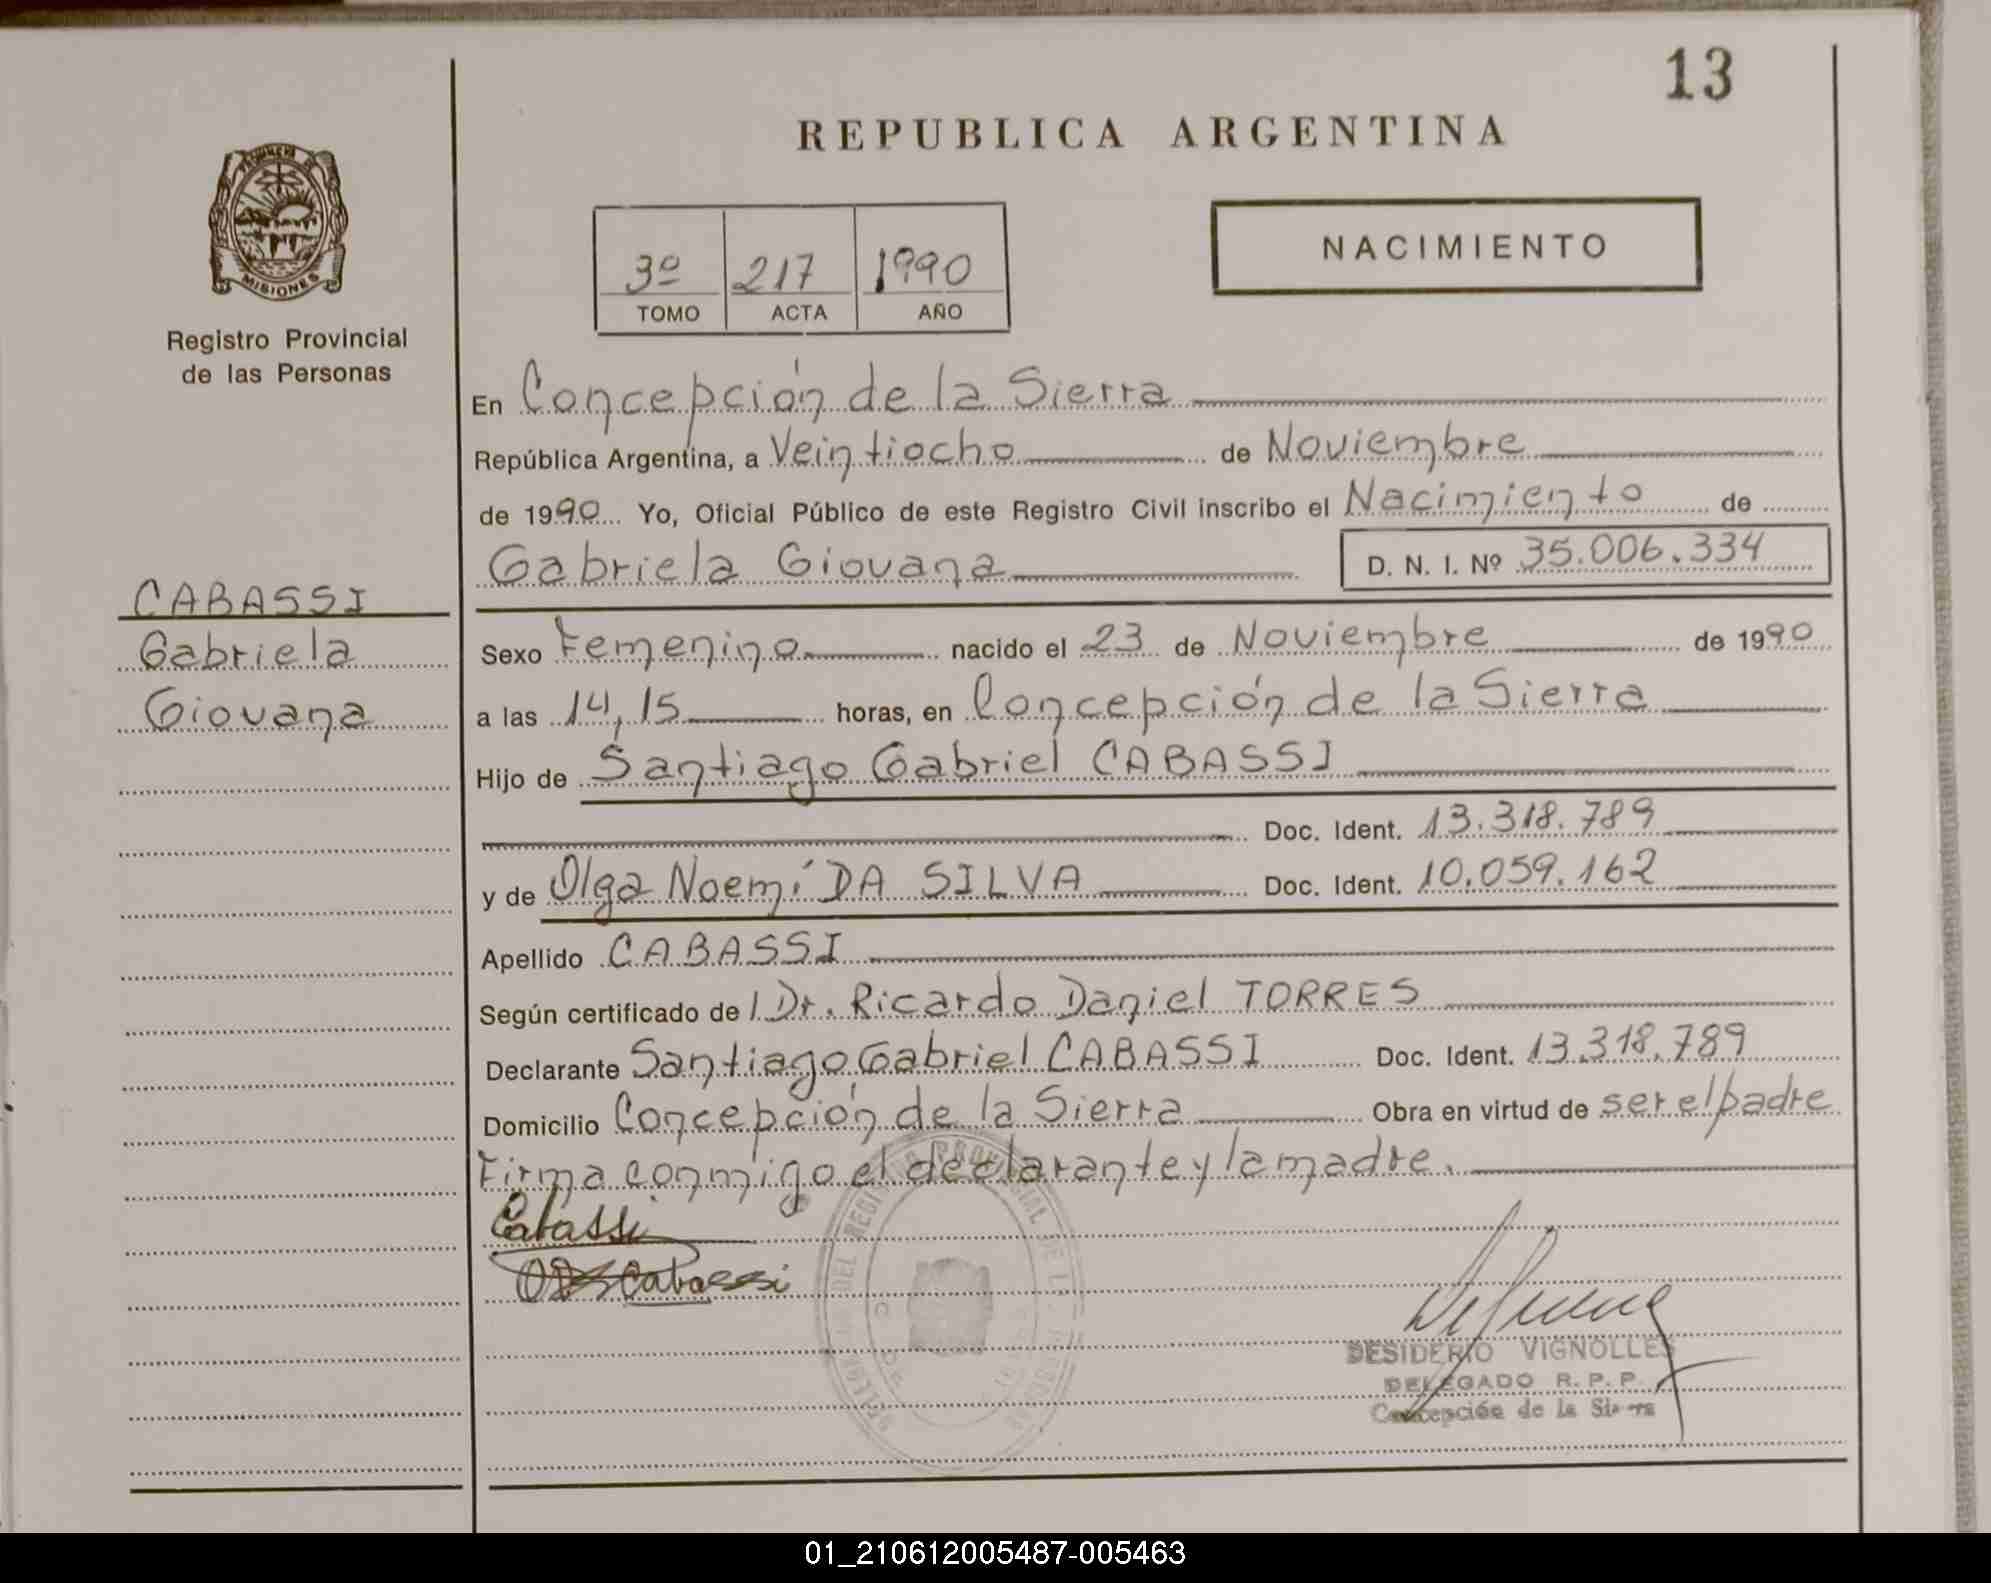 13
REPUBLICA ARGENTINA
PROVINCIA DE
MISIONES
Registro Provincial
de las Personas
3º 217 1990
TOMO ACTA AÑO
NACIMIENTO
En Concepción de la Sierra
República Argentina, a Veintiocho de Noviembre
de 1990 Yo, Oficial Público de este Registro Civil inscribo el Nacimiento de
Gabriela Giovana D. N. I. Nº 35.006.334
CABASSI
Gabriela
Giovana
Sexo Femenino nacido el 23 de Noviembre de 1990
a las 14,15 horas, en Concepción de la Sierra
Hijo de Santiago Gabriel CABASSI
Doc. Ident. 13.318.789
y de Olga Noemí DA SILVA Doc. Ident. 10.059.162
Apellido CABASSI
Según certificado de l Dr. Ricardo Daniel TORRES
Declarante Santiago Gabriel CABASSI Doc. Ident. 13.318.789
Domicilio Concepción de la Sierra Obra en virtud de ser el padre
Firma conmigo el declarante y la madre.
Cabassi
Cabassi
DESIDERIO VIGNOLLES
DELEGADO R. P. P.
Concepción de la Sierra
01_210612005487-005463